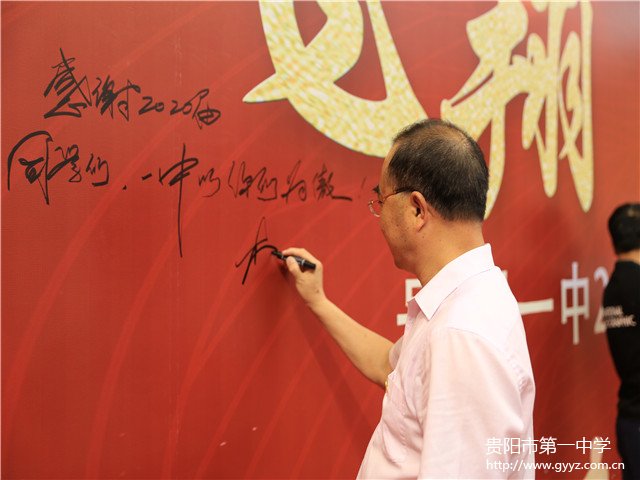 翔
感谢2020届
同学们，一中以你们为傲！
一中2
贵阳市第一中学
http://www.gyyz.com.cn